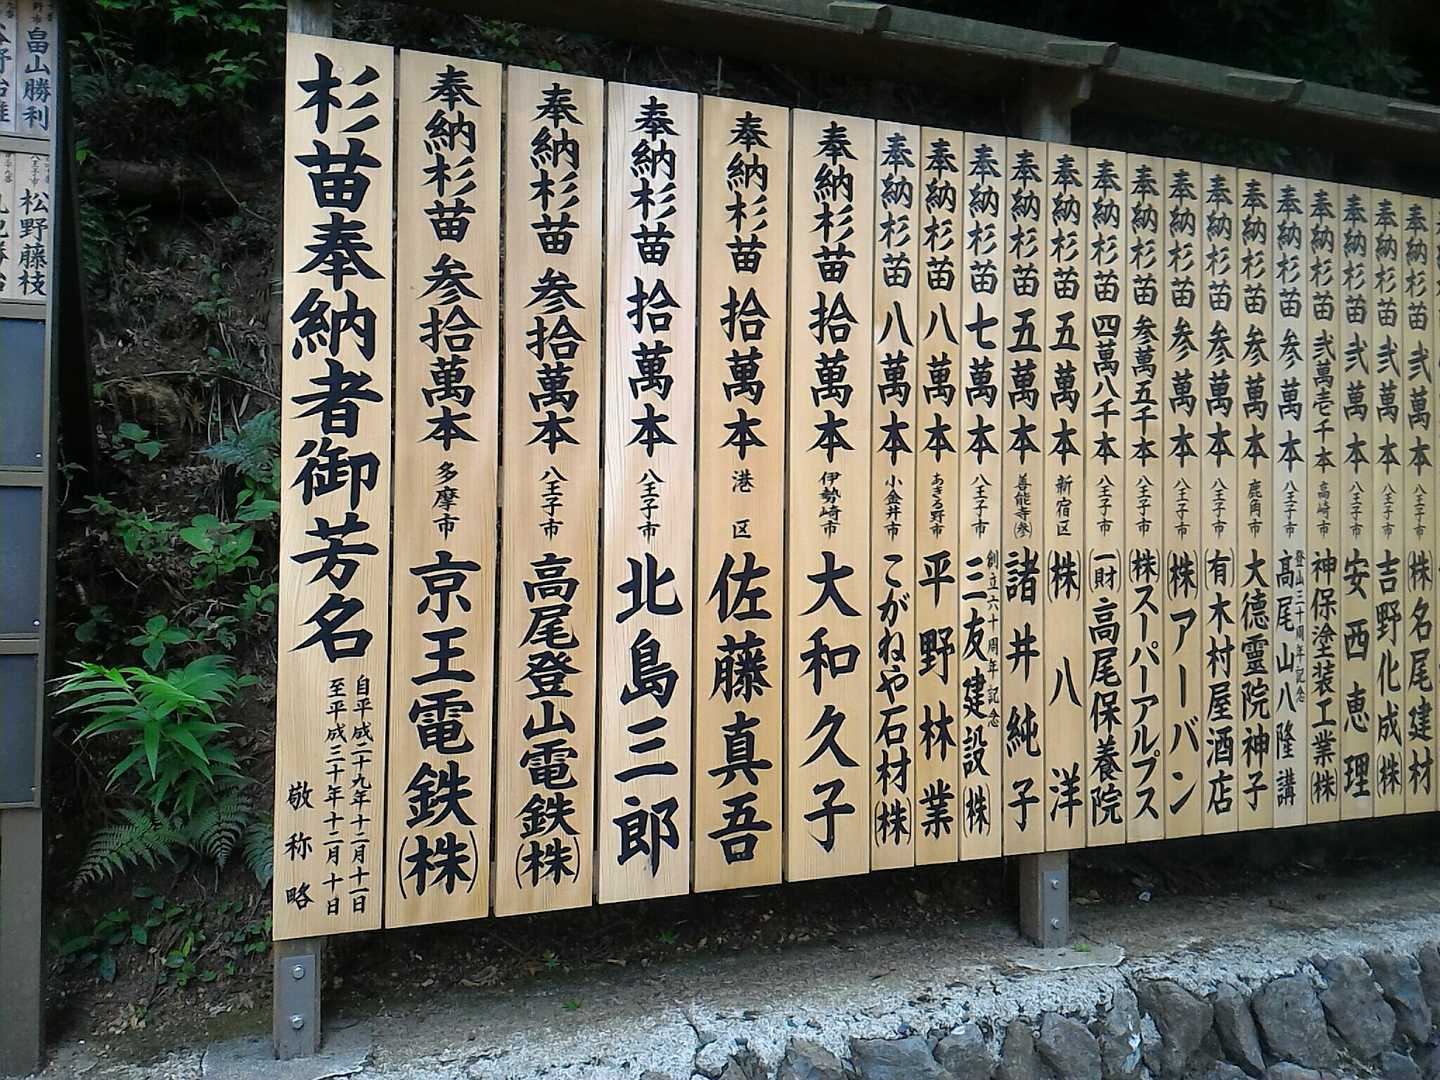 杉苗奉納者御芳名
自平成二十九年十二月十一日
至平成三十年十二月十日
敬称略
奉納杉苗 参拾萬本 多摩市 京王電鉄(株)
奉納杉苗 参拾萬本 八王子市 高尾登山電鉄(株)
奉納杉苗 拾萬本 八王子市 北島三郎
奉納杉苗 拾萬本 港区 佐藤真吾
奉納杉苗 拾萬本 伊勢崎市 大和久子
奉納杉苗 八萬本 小金井市 こがねや石材(株)
奉納杉苗 八萬本 あきる野市 平野林業
奉納杉苗 七萬本 八王子市 創立六十周年記念 三友建設(株)
奉納杉苗 五萬本 善能寺(参) 諸井純子
奉納杉苗 五萬本 新宿区 (株)八洋
奉納杉苗 四萬八千本 八王子市 (一財)高尾保養院
奉納杉苗 参萬五千本 八王子市 (株)スーパーアルプス
奉納杉苗 参萬本 八王子市 (株)アーバン
奉納杉苗 参萬本 八王子市 (有)木村屋酒店
奉納杉苗 参萬本 鹿角市 大徳霊院神子
奉納杉苗 参萬本 八王子市 登山三十周年記念 高尾山八隆講
奉納杉苗 弐萬壱千本 高崎市 神保塗装工業(株)
奉納杉苗 弐萬本 八王子市 安西恵理
奉納杉苗 弐萬本 八王子市 吉野化成(株)
奉納杉苗 弐萬本 八王子市 (株)名尾建材
畠山勝利
八王子市 松野藤枝